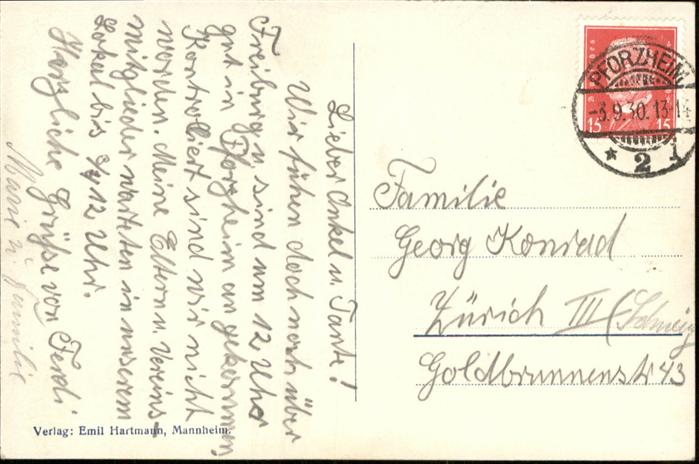 Lieber Onkel u. Tante!
Wir fuhren doch noch über
Freiburg u sind um 12 Uhr
gut in Pforzheim an gekommen
Kontroliert sind wir nicht
worden. Meine Eltern u Vereins-
mitglieder warteten in unserem
Lokal bis 3/4 12 Uhr.
Herzliche Grüße von Ferdi
Marie u. Familie
Verlag: Emil Hartmann, Mannheim.
PFORZHEIM
-3.9.30.13-14
* 2 i
15 15
Familie
Georg Konrad
Zürich III (Schweiz
Goldbrunnenstr 43